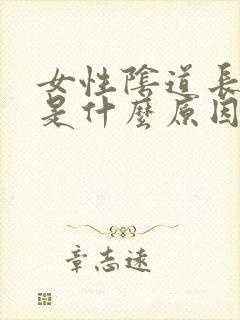 女性陰道長
是什麼原因
章志遠